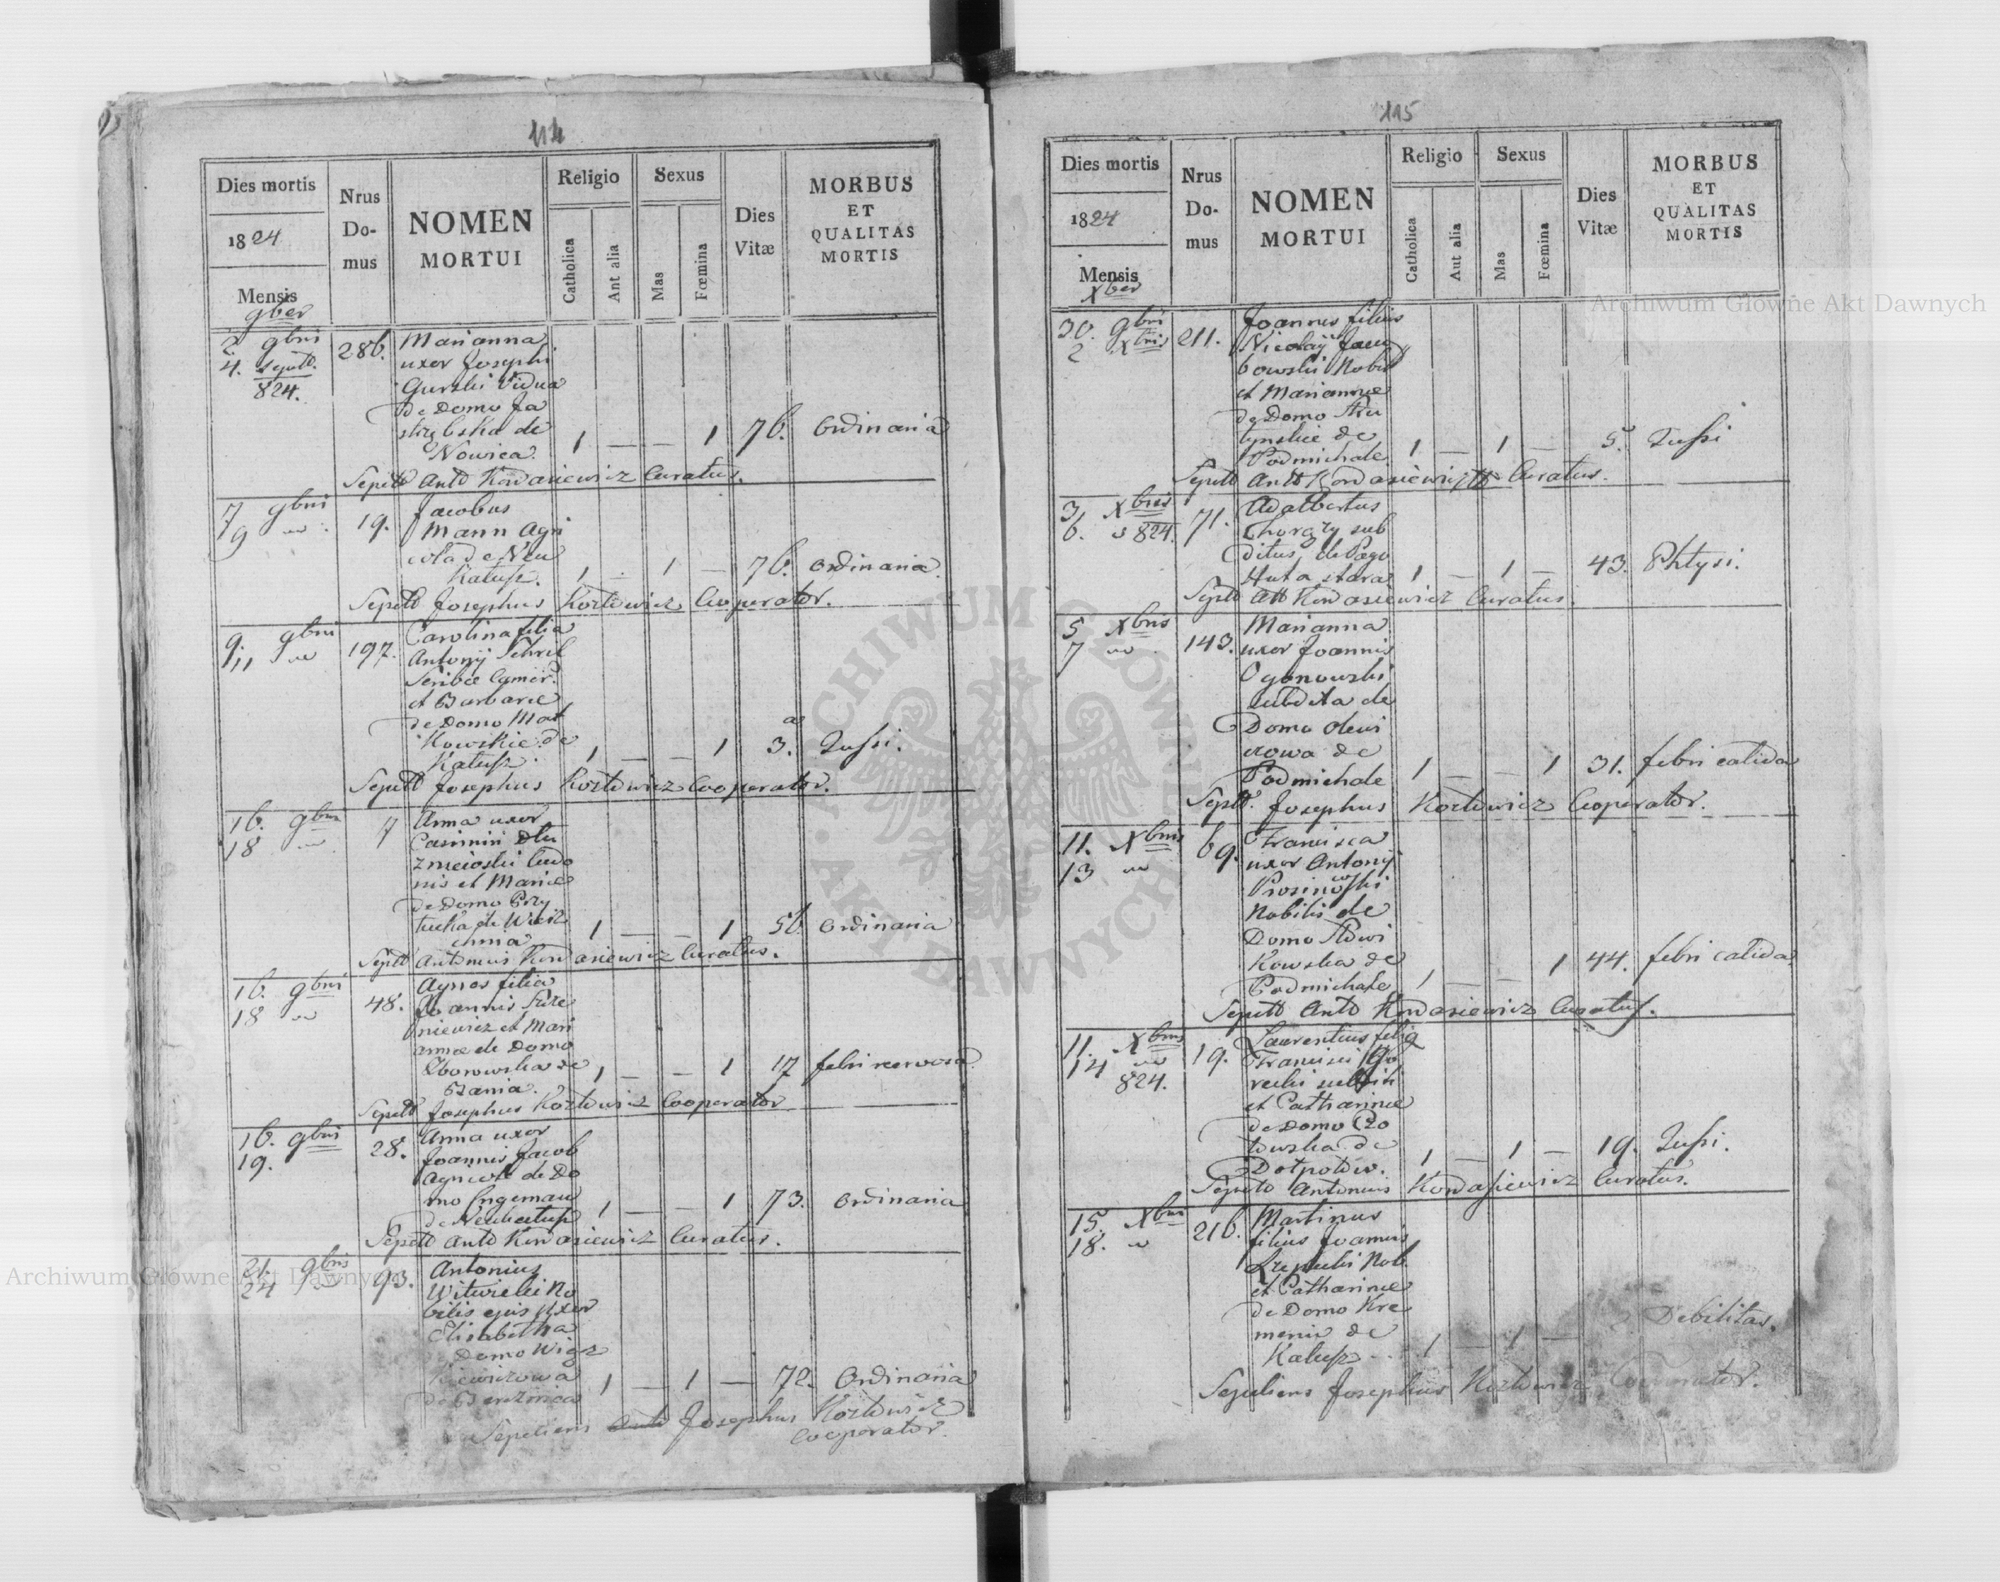 114
Dies mortis
1824
Mensis
9ber
Nrus
Do-
mus
NOMEN
MORTUI
Religio
Catholica
Aut alia
Sexus
Mas
Fœmina
Dies
Vitæ
MORBUS
ET
QUALITAS
MORTIS
2 9bris
4. sepult.
824.
286.
Marianna
uxor Josephi
Gurski Vidua
de Domo Ja
strębska de
Nowica. 1 — — 1 76. Ordinaria
Sepelt Antd Kordasiewicz Curatus.
7 9bris
9 "
19.
Jacobus
Mann Agri
cola de Neu
Kałusz. 1 — 1 — 76. ordinaria.
Sepelt Josephus Kozłowicz Cooperator.
9. 9bris
11 "
197.
Carolina filia
Antonij Schrel
Scribæ Camer.
et Barbaræ
de Domo Mat
Kowskie de
Kałusz. 1 — — 1 3. Tussi.
Sepelt Josephus Kozłowicz Cooperator.
16. 9bris
18 "
7
Anna uxor
Casimiri Dłu
et Mariæ
de Domo Przy
tucka de Wierz
chnia 1 — — 1 56 Ordinaria
Sepelt Antonius Kordasiewicz Curatus.
16. 9bris
18 "
48.
Agnes filia
Joannis
niewicz et Mari
annæ de Domo
Zborowska de
Bania. 1 — — 1 17 febri nervosa
Sepelt Josephus Kozłowicz Cooperator
16. 9bris
19.
28.
Anna uxor
Joannis Jacob
Agricolæ de Do
mo Engeman
de Neukałusz 1 — — 1 73. Ordinaria
Sepelt Antd Kordasiewicz Curatus.
21. 9bris
24 "
93.
Antonius
Witwicki No
bilis ejus uxor
Elisabetha
Domo Wisz
niewiczowa
de Berznica 1 — 1 — 72. Ordinaria
Sepeliens Josephus Kozłowicz
Cooperator.
115
Dies mortis
1824
Mensis
Xber
Nrus
Do-
mus
NOMEN
MORTUI
Religio
Catholica
Aut alia
Sexus
Mas
Fœmina
Dies
Vitæ
MORBUS
ET
QUALITAS
MORTIS
30. 9bris
2 Xbris
211.
Joannes filius
Nicolaij Jaku
bowski Nobil
et Mariannæ
de Domo Stru
tynskie de
Podmichale 1 — 1 — 5. Tussi
Sepelt Antd Kordasiewicz Curatus.
3 Xbris
6. 824.
71.
Adalbertus
Chorąży sub
ditus de Pago
Huta stara 1 — 1 — 43. Phtysi.
Sepelt Att Kordasiewicz Curatus.
5 Xbris
7 "
143.
Marianna
uxor Joannis
Ogonowski
subdita de
Domo Olewi
de
Podmichale 1 — — 1 31. febri calida
Sepelt. Josephus Kozłowicz Cooperator.
11. Xbris
13 "
69.
Francisca
uxor Antonij
Prosinowski
Nobilis de
Domo Słowi
Kowska de
Podmichale 1 — — 1 44. febri calida.
Sepelt Antd Kordasiewicz Curatus.
11. Xbris
14 "
824.
19.
Laurentius
Francisci Gó
recki
et Catharinæ
de Domo
de
Dołpotow. 1 — 1 — 19. Tussi.
Sepelt Antonius Kordasiewicz Curatus.
15. Xbris
18. "
216.
Martinus
filius Joannis
Nob.
et Catharinæ
de Domo Kre
de
Kałusz 1 — 1 — Debilitas.
Sepeliens Josephus Kozłowicz Cooperator.
Archiwum Główne Akt Dawnych
Archiwum Główne Akt Dawnych
ARCHIWUM GŁÓWNE AKT DAWNYCH